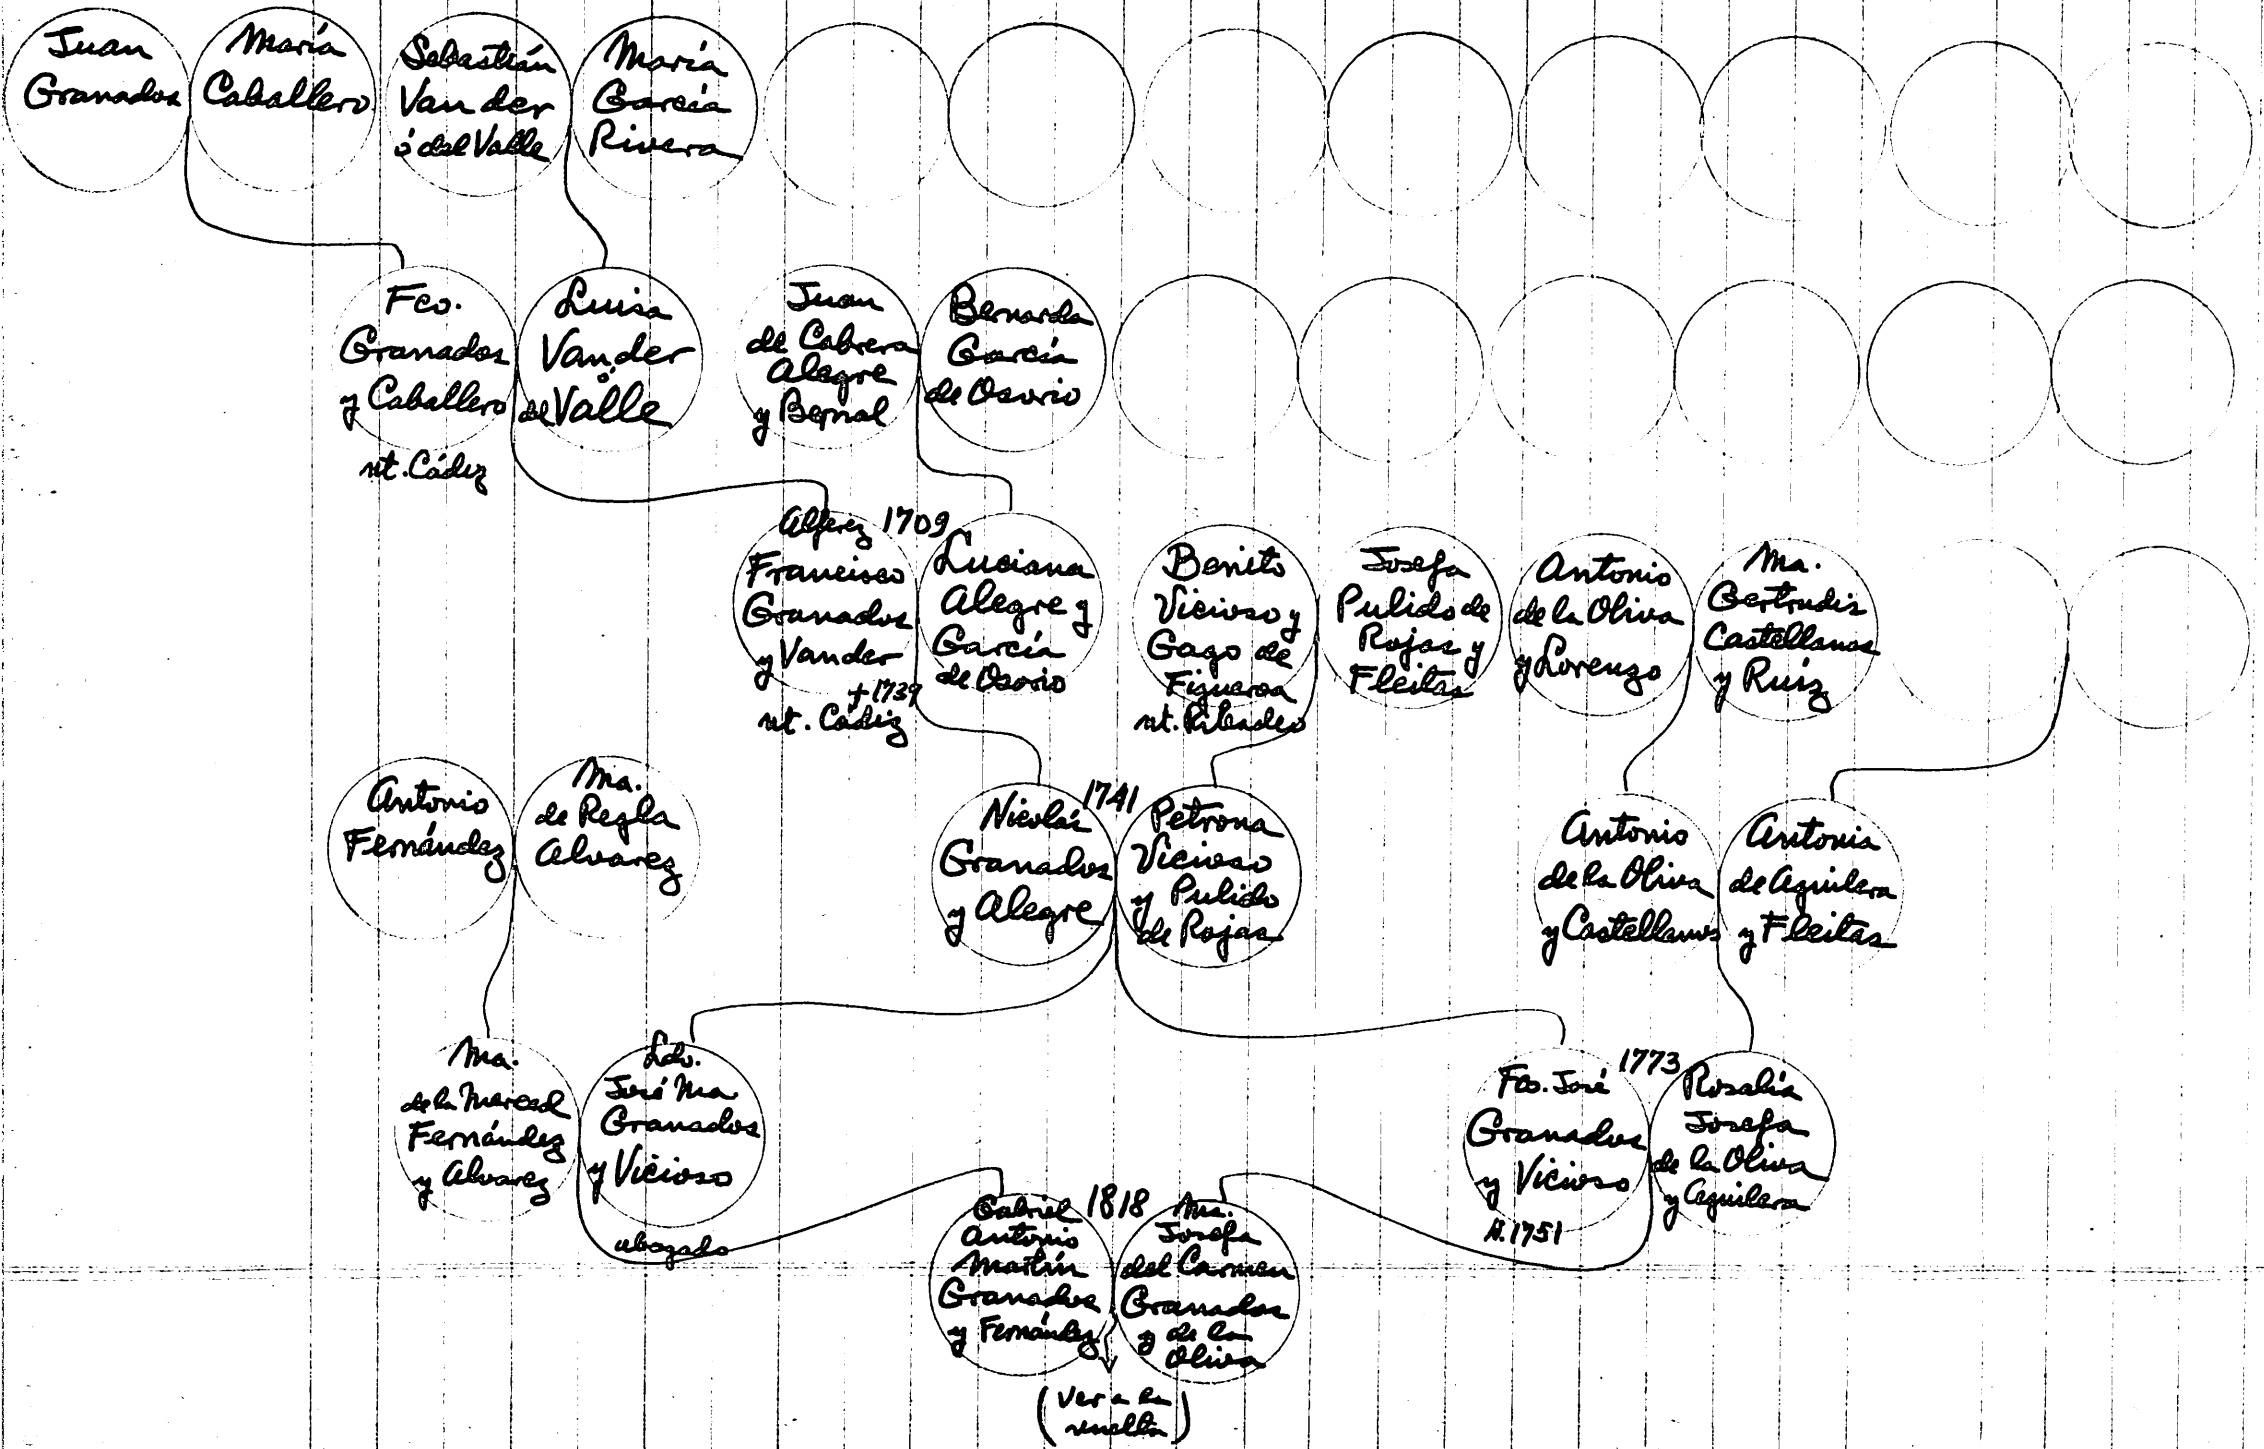 Juan
Granados
María
Caballero
Sebastián
Van der
ó del Valle
María
García
Rivera
Fco.
Granados
y Caballero
nt. Cádiz
Luisa
Vander
ó
del Valle
Juan
de Cabrera
Alegre
y Bernal
Bernarda
García
de Osorio
Alferez 1709
Francisco
Granados
y Vander
+1739
nt. Cádiz
Luciana
Alegre y
García
de Osorio
Benito
Vicioso y
Gago de
Figueroa
nt. Ribadeo
Josefa
Pulido de
Rojas y
Fleitas
Antonio
de la Oliva
y Lorenzo
Ma.
Gertrudis
Castellanos
y Ruíz
Antonio
Fernández
Ma.
de Regla
Alvarez
Nicolás
Granados
y Alegre
1741
Petrona
Vicioso
y Pulido
de Rojas
Antonio
de la Oliva
y Castellanos
Antonia
de Aguilera
y Fleitas
Ma.
de la Merced
Fernández
y Alvarez
Ldo.
José Ma
Granados
y Vicioso
abogado
Fco. José
Granados
y Vicioso
N. 1751
1773
Rosalía
Josefa
de la Oliva
y Aguilera
Gabriel
Antonio
Martín
Granados
y Fernández
1818
Ma.
Josefa
del Carmen
Granados
y de la
Oliva
(Ver a la
vuelta)